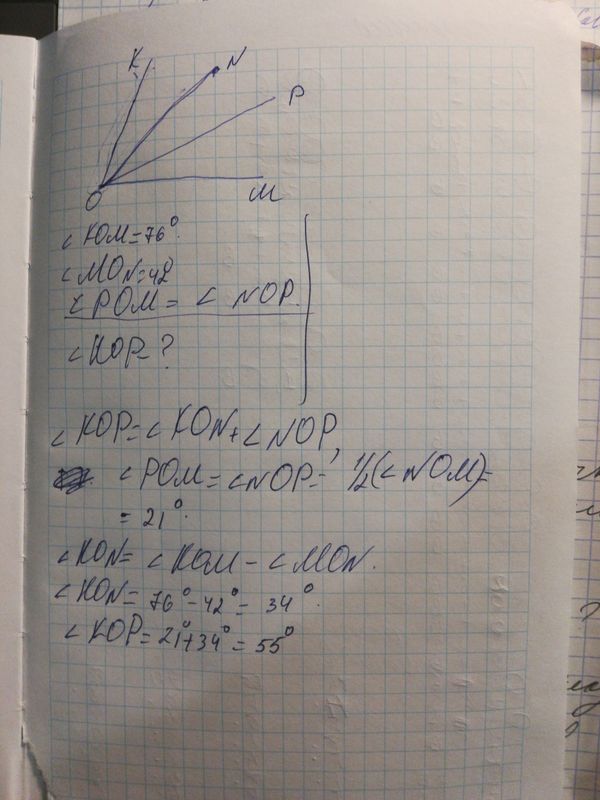 K N
P
O M
∠KOM=76°.
∠MON=42
∠POM= ∠ NOP.
∠KOP-?
∠KOP=∠KON+∠NOP,
∠POM=∠NOP= 1/2(∠NOM)=
= 21°.
∠KON= ∠KOM-∠MON.
∠KON= 76°-42°= 34°.
∠KOP=21°+34°=55°